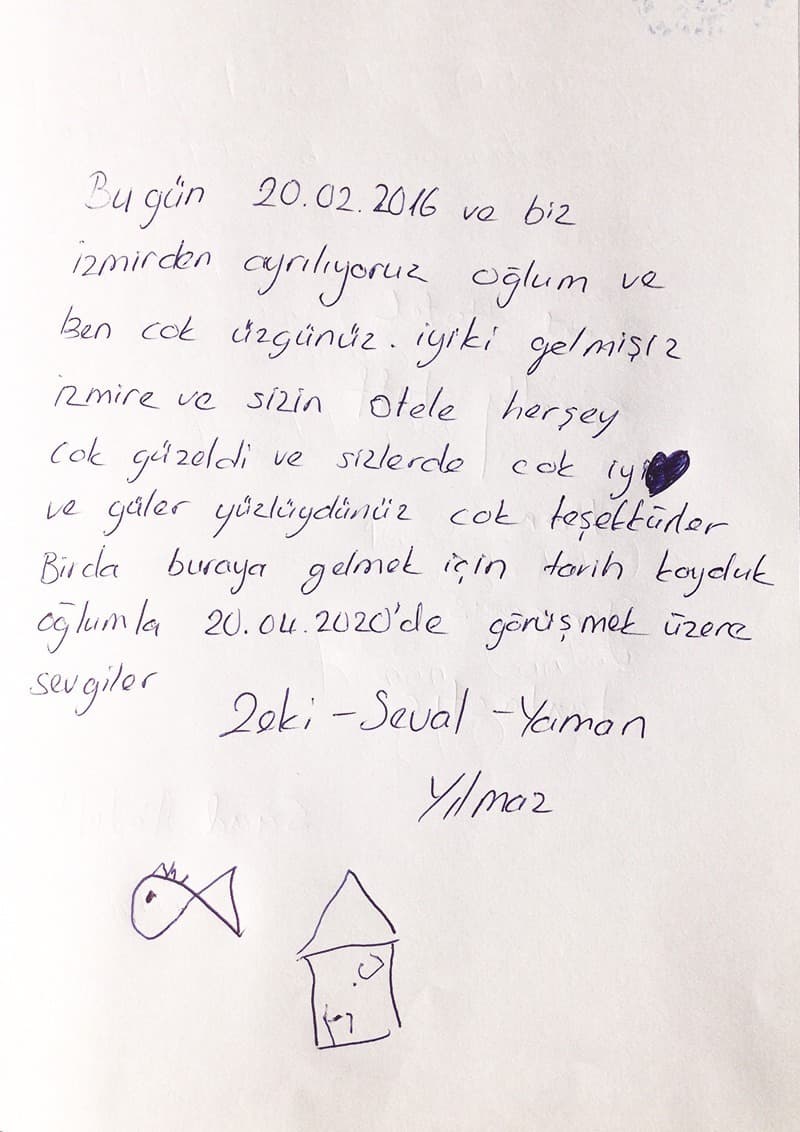 Bugün 20.02.2016 ve biz
izmirden ayrılıyoruz oğlum ve
Ben cok üzgünüz. iyiki gelmişiz
izmire ve sizin otele herşey
cok güzeldi ve sizlerde cok iyi
ve güler yüzlüydünüz cok teşekkürler
Birda buraya gelmek için tarih koyduk
oğlumla 20.04.2020'de görüşmek üzere
sevgiler
Zeki - Seval - Yaman
Yılmaz